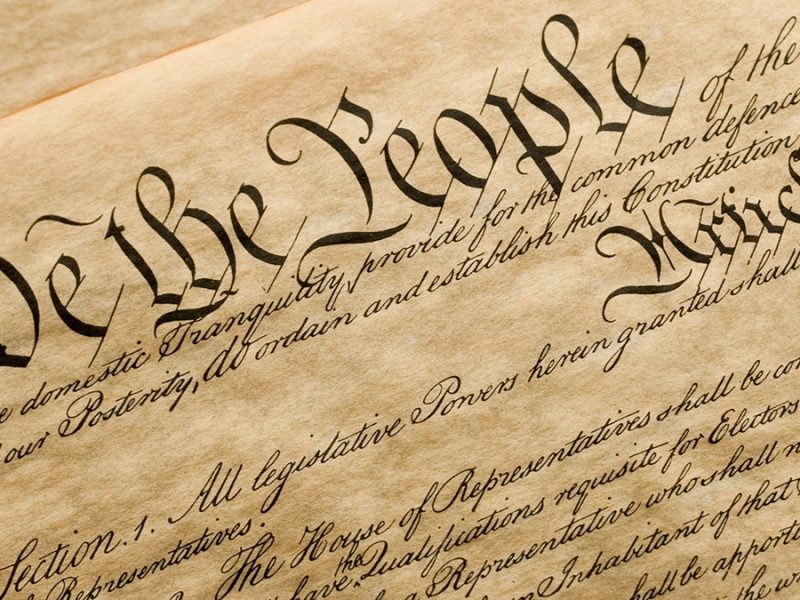 We the People of the
domestic Tranquility, provide for the common defence
our Posterity, do ordain and establish this Constitution
Section. 1. All legislative Powers herein granted shall
of Representatives.
The House of Representatives shall be
have the Qualifications requisite for Electors
a Representative who shall
Inhabitant of that
shall be
the